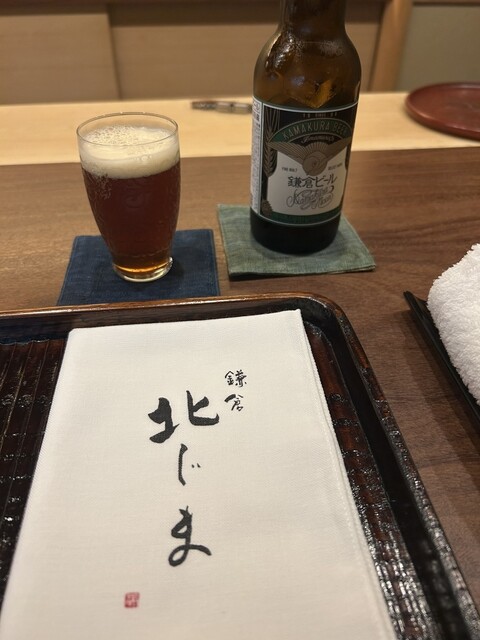 KAMAKURA BEER
鎌倉ビール
鎌倉
北じま